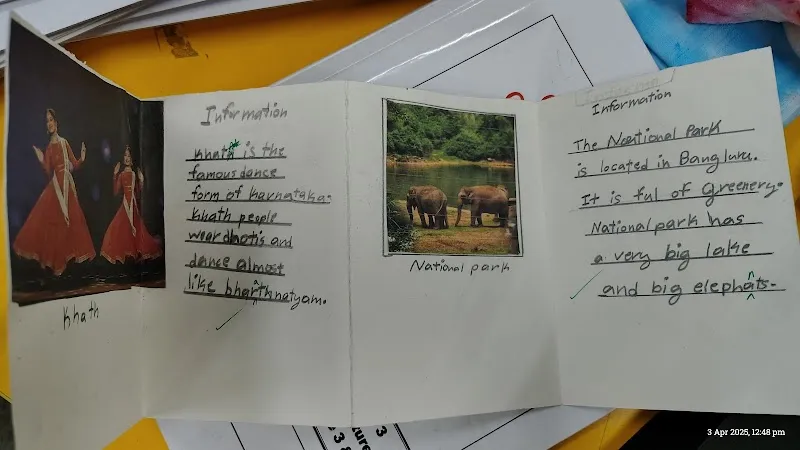 Information
Khatk is the
famous dance
form of Karnataka.
Khath people
wear dhotis and
dance almost
like bhartknatyam.
Khath
National park
Information
The National Park
is located in Bangluru.
It is ful of Greenery.
National park has
a very big lake
and big elephats.
3 Apr 2025, 12:48 pm